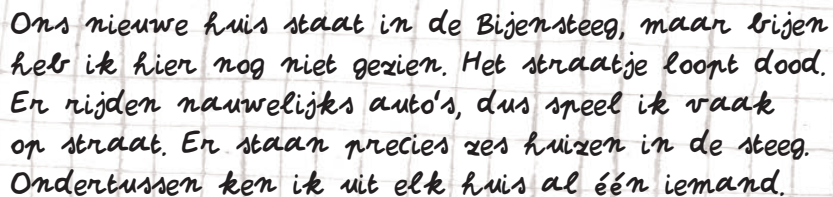 Ons nieuwe huis staat in de Bijensteeg, maar bijen
heb ik hier nog niet gezien. Het straatje loopt dood.
Er rijden nauwelijks auto's, dus speel ik vaak
op straat. Er staan precies zes huizen in de steeg.
Ondertussen ken ik uit elk huis al één iemand.